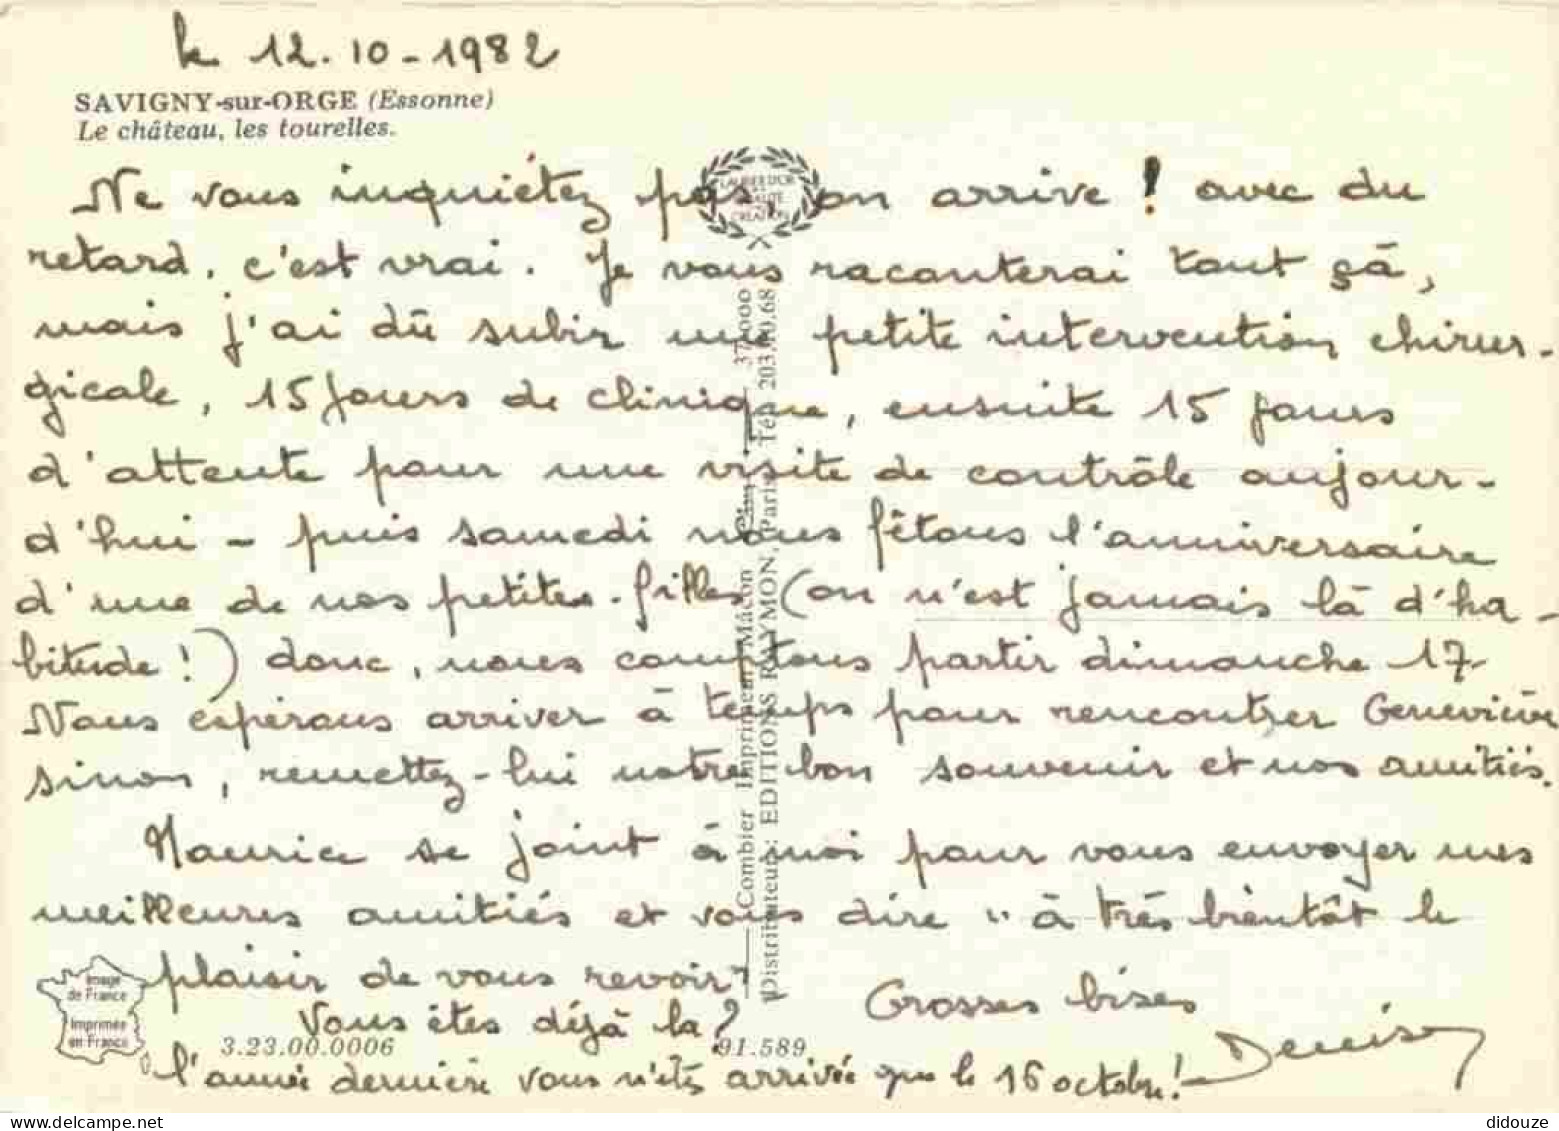 le 12.10-1982
SAVIGNY-sur-ORGE (Essonne)
Le château, les tourelles.
Ne vous inquiétez pas, on arrive ! avec du
retard, c'est vrai. Je vous raconterai tout çà,
mais j'ai dû subir une petite intervention chirur-
gicale, 15 jours de clinique, ensuite 15 jours
d'attente pour une visite de contrôle aujour-
d'hui - puis samedi nous fêtons l'anniversaire
d'une de nos petites-filles (on n'est jamais là d'ha-
bitude !) donc, nous comptons partir dimanche 17-
Nous espérons arriver à temps pour rencontrer Geneviève
sinon, remettez-lui notre bon souvenir et nos amitiés.
Maurice se joint à moi pour vous envoyer mes
meilleures amitiés et vous dire "à très bientôt le
plaisir de vous revoir"
Grosses bises
Vous êtes déjà là ?
l'année dernière vous n'êts arrivée que le 16 octobre !
Denise
LAURIER D'OR
CRÉATION
Combier Imprimeur Mâcon
Distributeurs: EDITIONS RAYMON, Paris. Tél. 203.00.68
Image
de France
Imprimée
en France
3.23.00.0006
91.589
didouze